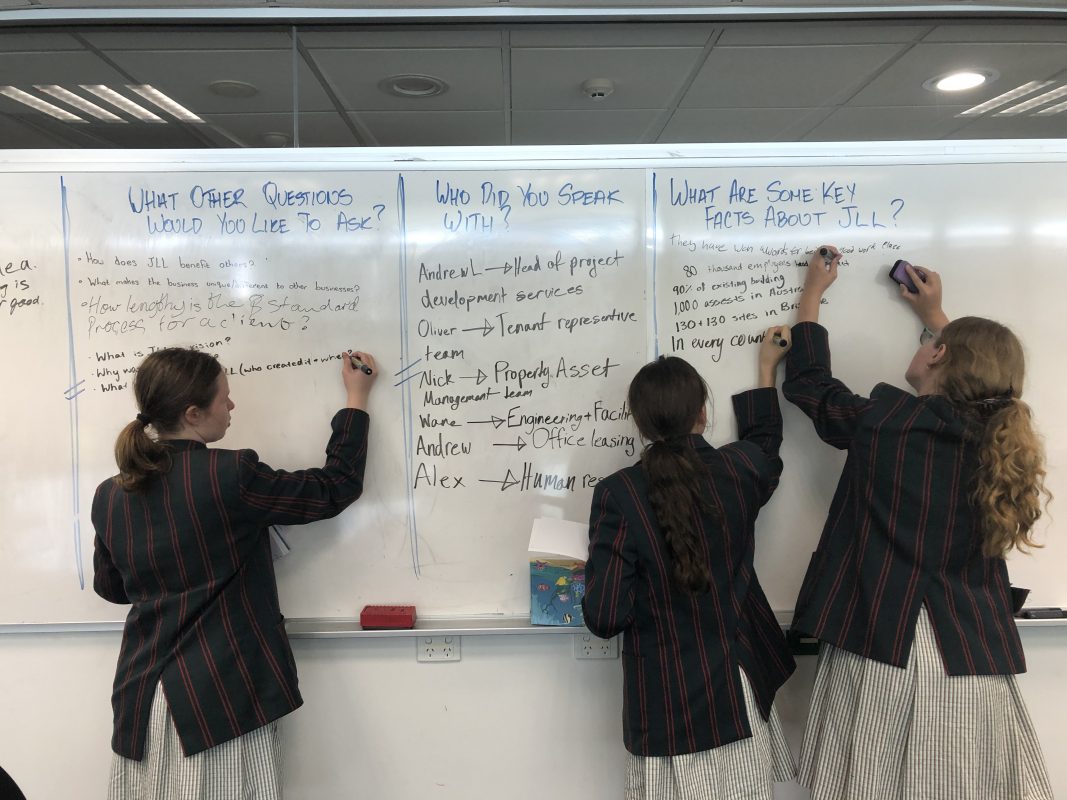 ea.
g is
good.
WHAT OTHER QUESTIONS
WOULD YOU LIKE TO ASK?
• How does JLL benefit others?
• What makes the business unique/different to other businesses?
• How lengthy is the standard
process for a client?
• What is vision?
• Why wa LL (who created it + when?
• What
WHO DID YOU SPEAK
WITH?
Andrew L → Head of project
development services
Oliver → Tenant representive
team
Nick → Property Asset
Management team
Wane → Engineering + Facilit
Andrew → Office leasing
Alex → Human res
WHAT ARE SOME KEY
FACTS ABOUT JLL?
They have won awards for good work place
80 thousand employees
90% of existing building
1,000 assests in Austra
130 + 130 sites in Bri
In every coun